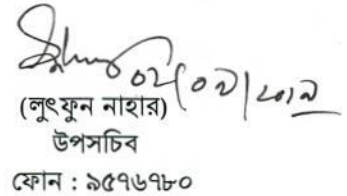 ০২/০৯/২০১৯
(লুৎফুন নাহার)
উপসচিব
ফোন : ৯৫৭৬৭৮০